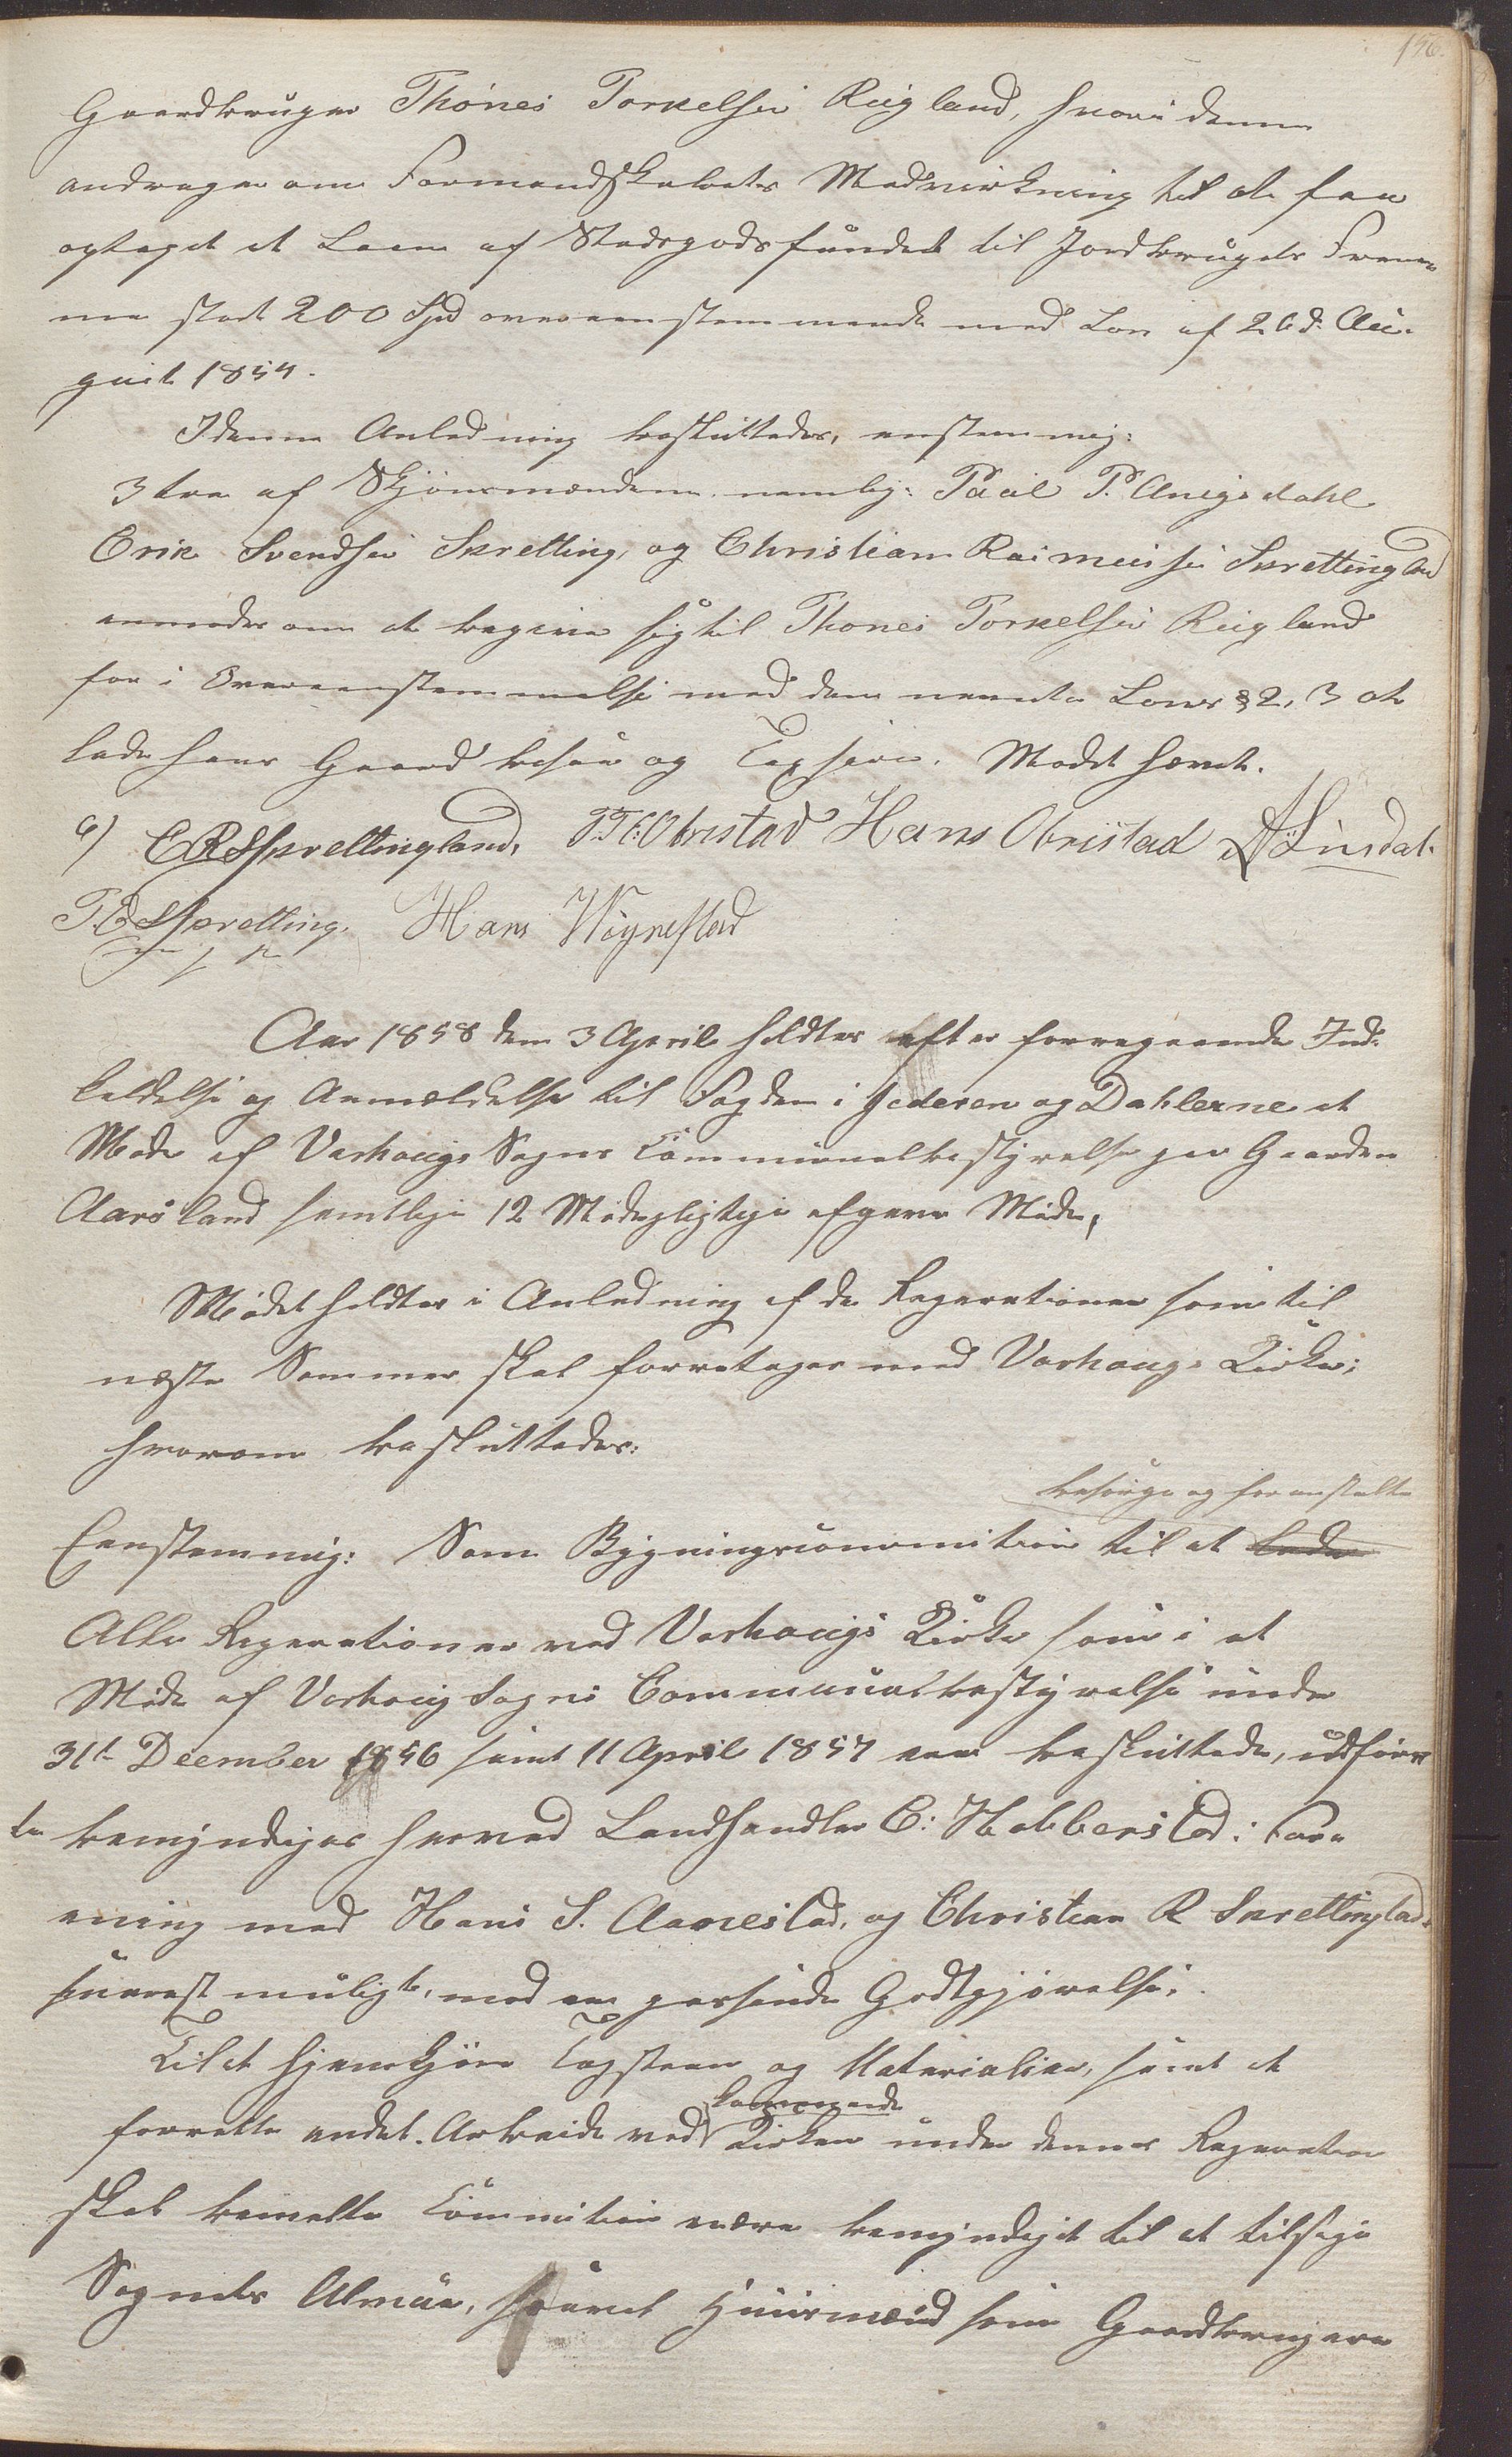 146.
Gaardbruger Thønes Torkelsen Rugland, hvori denne
andrager om Formandskabets Medvirkning til at faa
optaget et Laan af Stadsgodsfundet til Jordbrugets Frem-
me stort 200 Spd overeenstemmende med Lov af 26d. Au-
gust 1854.
I denne Anledning besluttedes, eenstemmig:
3 tre af Skjønsmændene nemlig: Paal P. Aniigsdahl
Erik Svendsen Skretting, og Christian Rasmussen Skrettingland
anmodes om at begive sig til Thønes Torkelsen Rugland
for i Overeenstemmelse med den nevnte Lovs § 2, 3 at
lade hans Gaard besee og Taxere. Mødet hævet.
C R Skrettingland, T. T. Obrestad Hans Obrestad A Lindal.
T. E Skretting. Hans Wignestad
Aar 1858 den 3 April holdtes efter forregaaende Ind-
kaldelse og Anmeldelse til Fogden i Jederen og Dahlerne et
Møde af Varhougs Sogns Communalbestyrelse paa Gaarden
Aarsland samtlige 12 Mødepligtige afgave Møde,
Mødet holdtes i Anledning af de Reparationer som til
næste Sommer skal forretages med Varhougs Kirke;
hvorom besluttedes:
besørge og foranstalte
Eenstemmig: Som Bygningscommitee til at lade
Alle Reparationer ved Varhougs Kirke som i et
Møde af Varhoug Sogns Communalbestyrelse under
31te Deember 1856 samt 11 April 1857 ere besluttede, udføre
te bemyndiges herved Landhandler C. Habberstad i Fore
ening med Hans S. Aanestad, og Christian R Skrettingland
snarest muligt, med en passende Godtgjørelse;
Til at hjemkjøre Tagsteen og Materialier, samt at
forrette andet Arbeide ved Kirken under dennes Reparation
skal bemeldte Committee være bemyndiget til at tilsige
Sognets Almue, saavel Huusmænd som Gaardbrugere